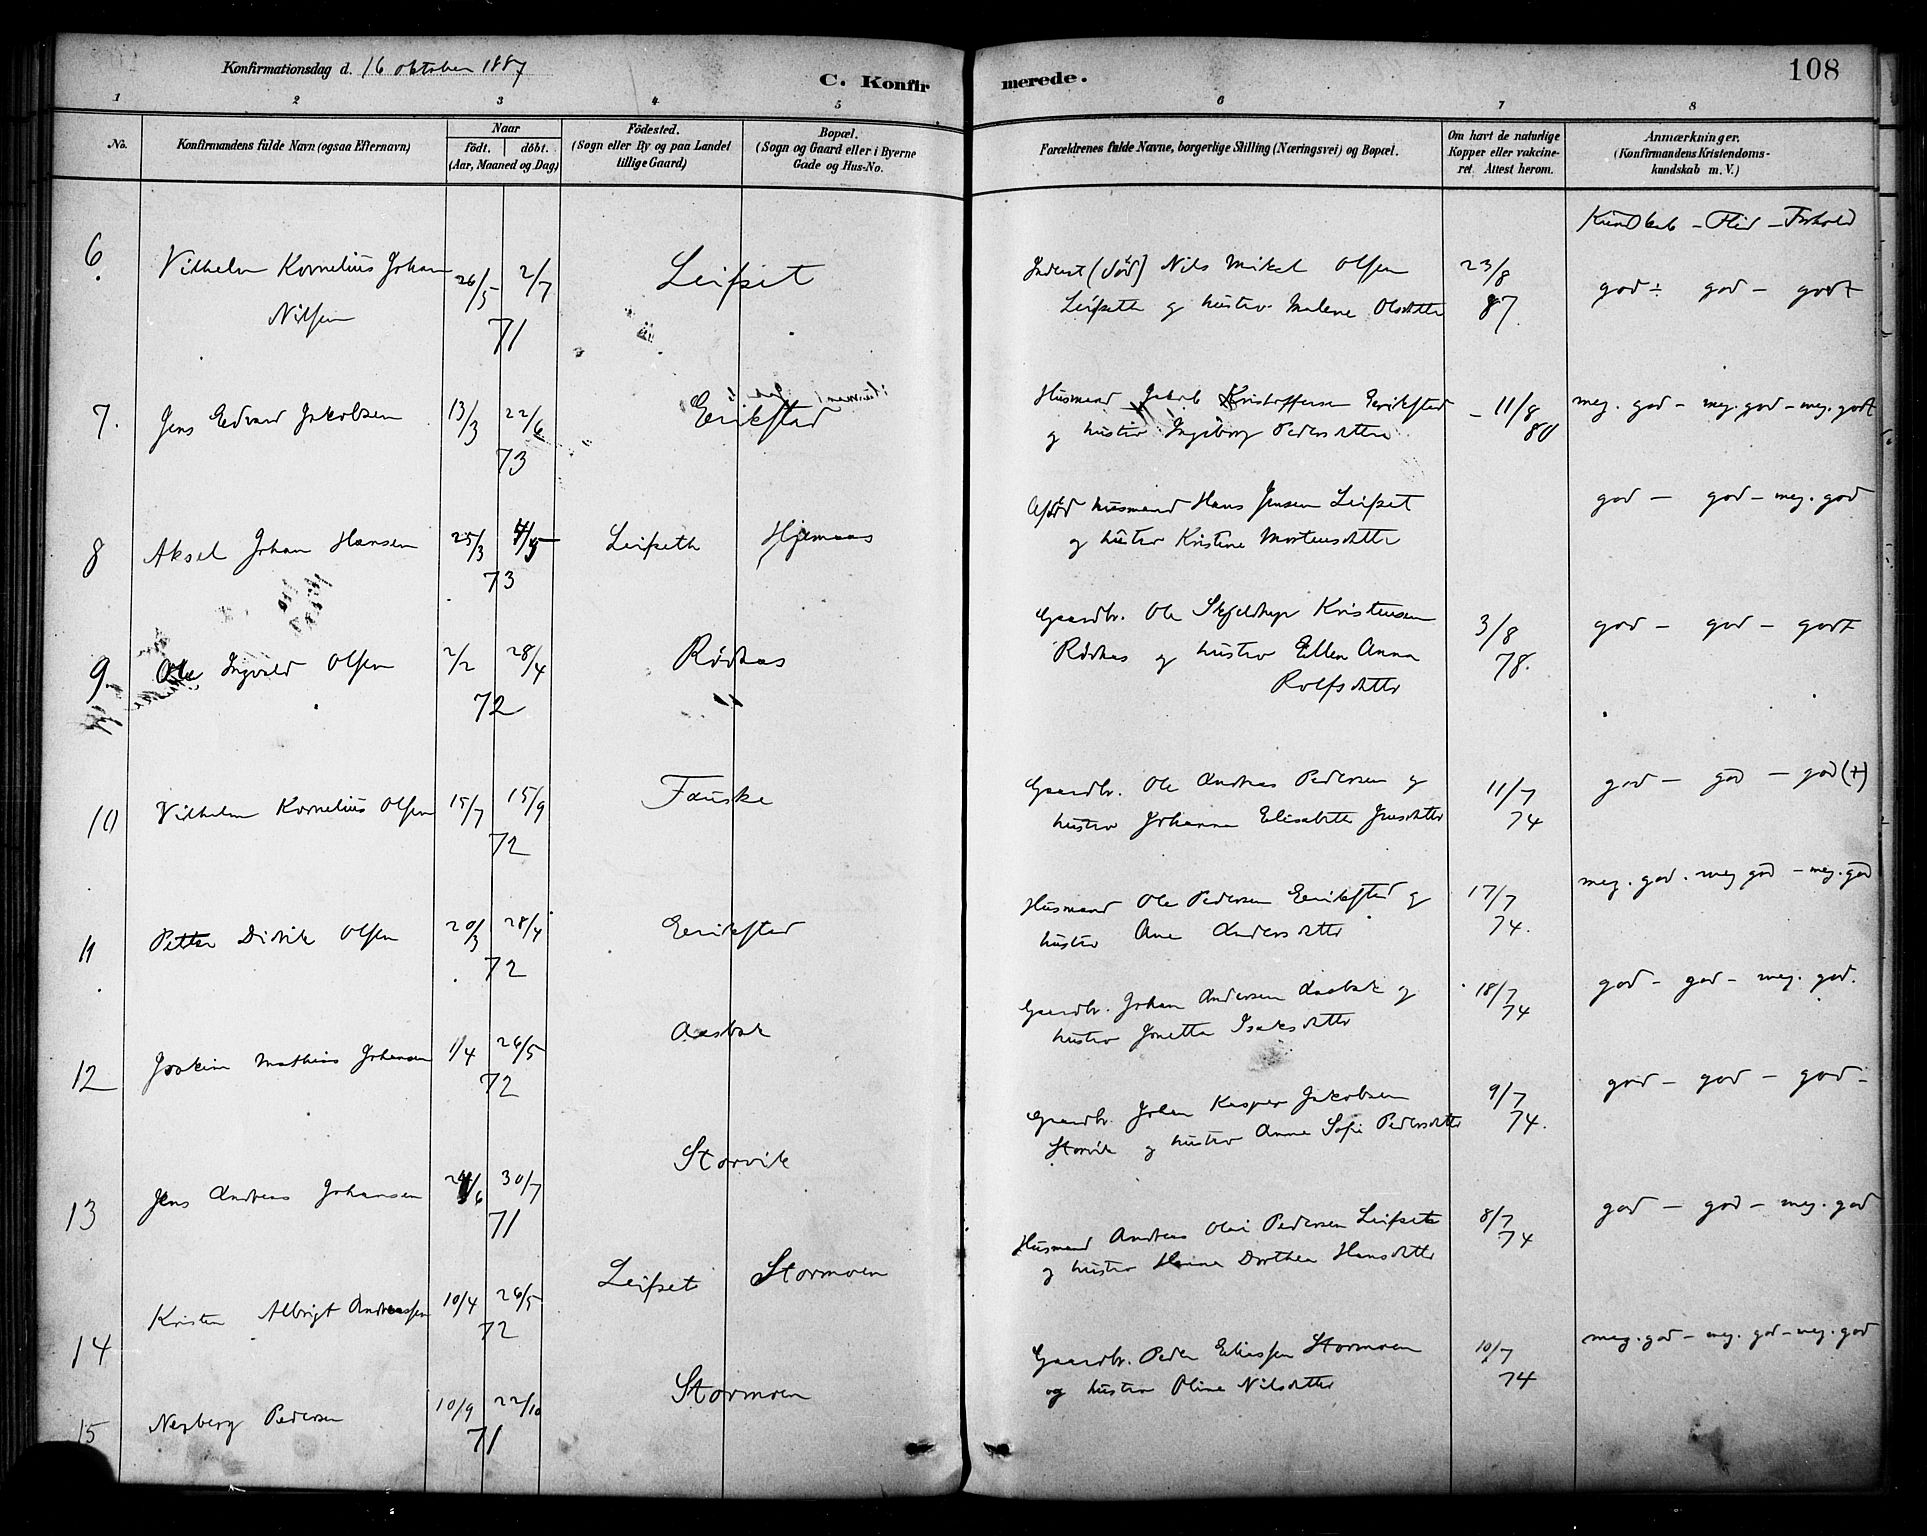 Konfirmationsdag d. 16 oktober 1887
C. Konfirmerede.
108
1 2 3 4 5 6 7 8
No.
Konfirmandens fulde Navn (ogsaa Efternavn)
Naar
födt. döbt.
(Aar, Maaned og Dag)
Födested.
(Sogn eller By og paa Landet
tillige Gaard)
Bopæl.
(Sogn og Gaard eller i Byerne
Gade og Hus-No.
Forældrenes fulde Navne, borgerlige Stilling (Næringsvei) og Bopæl.
Om havt de naturlige
Kopper eller vakcine-
ret. Attest herom.
Anmærkninger.
(Konfirmandens Kristendoms-
kundskab m. V.)
Kundskab - Flid - Forhold
6. Vilhelm Kornelius Johan 26/5 2/7 Leifset Inderst (död) Nils Mikal Olsen 23/8 god ÷ god - godt
Nilsen 71 Leifseth og hustro Malene Olsdtter 87.
7. Jens Edvard Jakobsen 13/3 22/6 Eerikstad Husmand Jakob Kristoffersen Eerikstad - 11/8 meg. god - meg. god - meg. godt
73 og hustro Ingeborg Pedersdatter 80
8 Aksel Johan Hansen 25/3 4/5 Leifseth Hjemaas Afdöd husmand Hans Jensen Leifset god - god - meg. god
73 og hustro Kristine Mortensdtter
9. Ole Ingvald Olsen 2/2 28/4 Rödkas Gaardbr. Ole Kristensen 3/8 god - god - godt
72 Rödkas og hustro Ellen Anna 78.
Rolfsdtter
10 Vilhelm Kornelius Olsen 15/7 15/9 Fauske Gaardbr. Ole Andreas Pedersen og 11/7 god - god - god (+)
72 hustro Johanna Elisabeth Jensdtter 74
11 Petter Didrik Olsen 20/3 28/4 Eerikstad Husmand Ole Pedersen Eerikstad og 17/7 meg. god. meg god - meg. god
72 hustro Ane Andersdtter 74.
12 Joakim Mathias Johansen 1/4 26/5 Aasbak Gaardbr. Johan Andersen Aasbak og 18/7 god - god - meg. god.
72 hustro Jonetta Isaksdtter 74
13 Jens Andreas Johansen /6 30/7 Storvik Gaardbr. Johan Kasper Jakobsen 9/7 god - god - god -
71 Storvik og hustro Anna Sofie Pedersdtter 74.
14 Kristen Albrigt Andreassen 10/4 26/5 Leifset Stormoen Husmand Andreas Olai Pedersen Leifseth 8/7 god - god - meg. god
72 og hustro Hanna Dorthea Hansdtter 74
15 Nerberg Pedersen 10/9 22/10 Stormoen Gaardbr. Peder Eliassen Stormoen 10/7 meg. god - meg. god - meg. god
71 og hustro Oline Nilsdtter 74